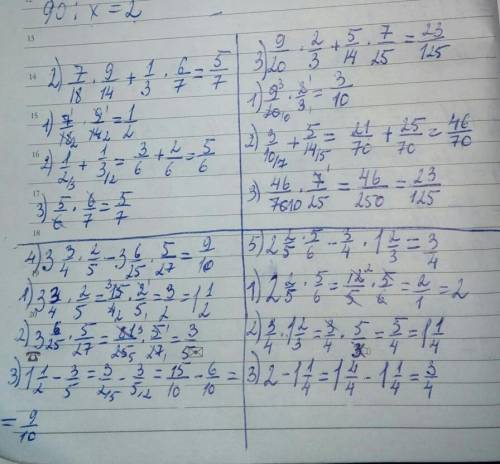 90 : x = 2
13
14
15
16
17
18
2) 7/18 · 9/14 + 1/3 · 6/7 = 5/7
1) 7¹/18₂ · 9¹/14₂ = 1/2
2) 1/2 /3 + 1/3 /2 = 3/6 + 2/6 = 5/6
3) 5/6 · 6/7 = 5/7
3) 9/20 · 2/3 + 5/14 · 7/25 = 23/125
1) 9³/20₁₀ · 2¹/3₁ = 3/10
2) 3/10 /7 + 5/14 /5 = 21/70 + 25/70 = 46/70
3) 46/70 10 · 7¹/25 = 46/250 = 23/125
4) 3 3/4 · 2/5 - 3 6/25 · 5/27 = 9/10
1) 3 3/4 · 2/5 = ³15/4₂ · 2/5₁ = 3/2 = 1 1/2
2) 3 6/25 · 5/27 = 81³/25₅ · 5¹/27₁ = 3/5
3) 1 1/2 - 3/5 = 3/2 /5 - 3/5 /2 = 15/10 - 6/10 =
= 9/10
5) 2 2/5 · 5/6 - 3/4 · 1 2/3 = 3/4
1) 2 2/5 · 5/6 = 12²/5 · 5/6 = 2/1 = 2
2) 3/4 · 1 2/3 = 3/4 · 5/3 = 5/4 = 1 1/4
3) 2 - 1 1/4 = 1 4/4 - 1 1/4 = 3/4